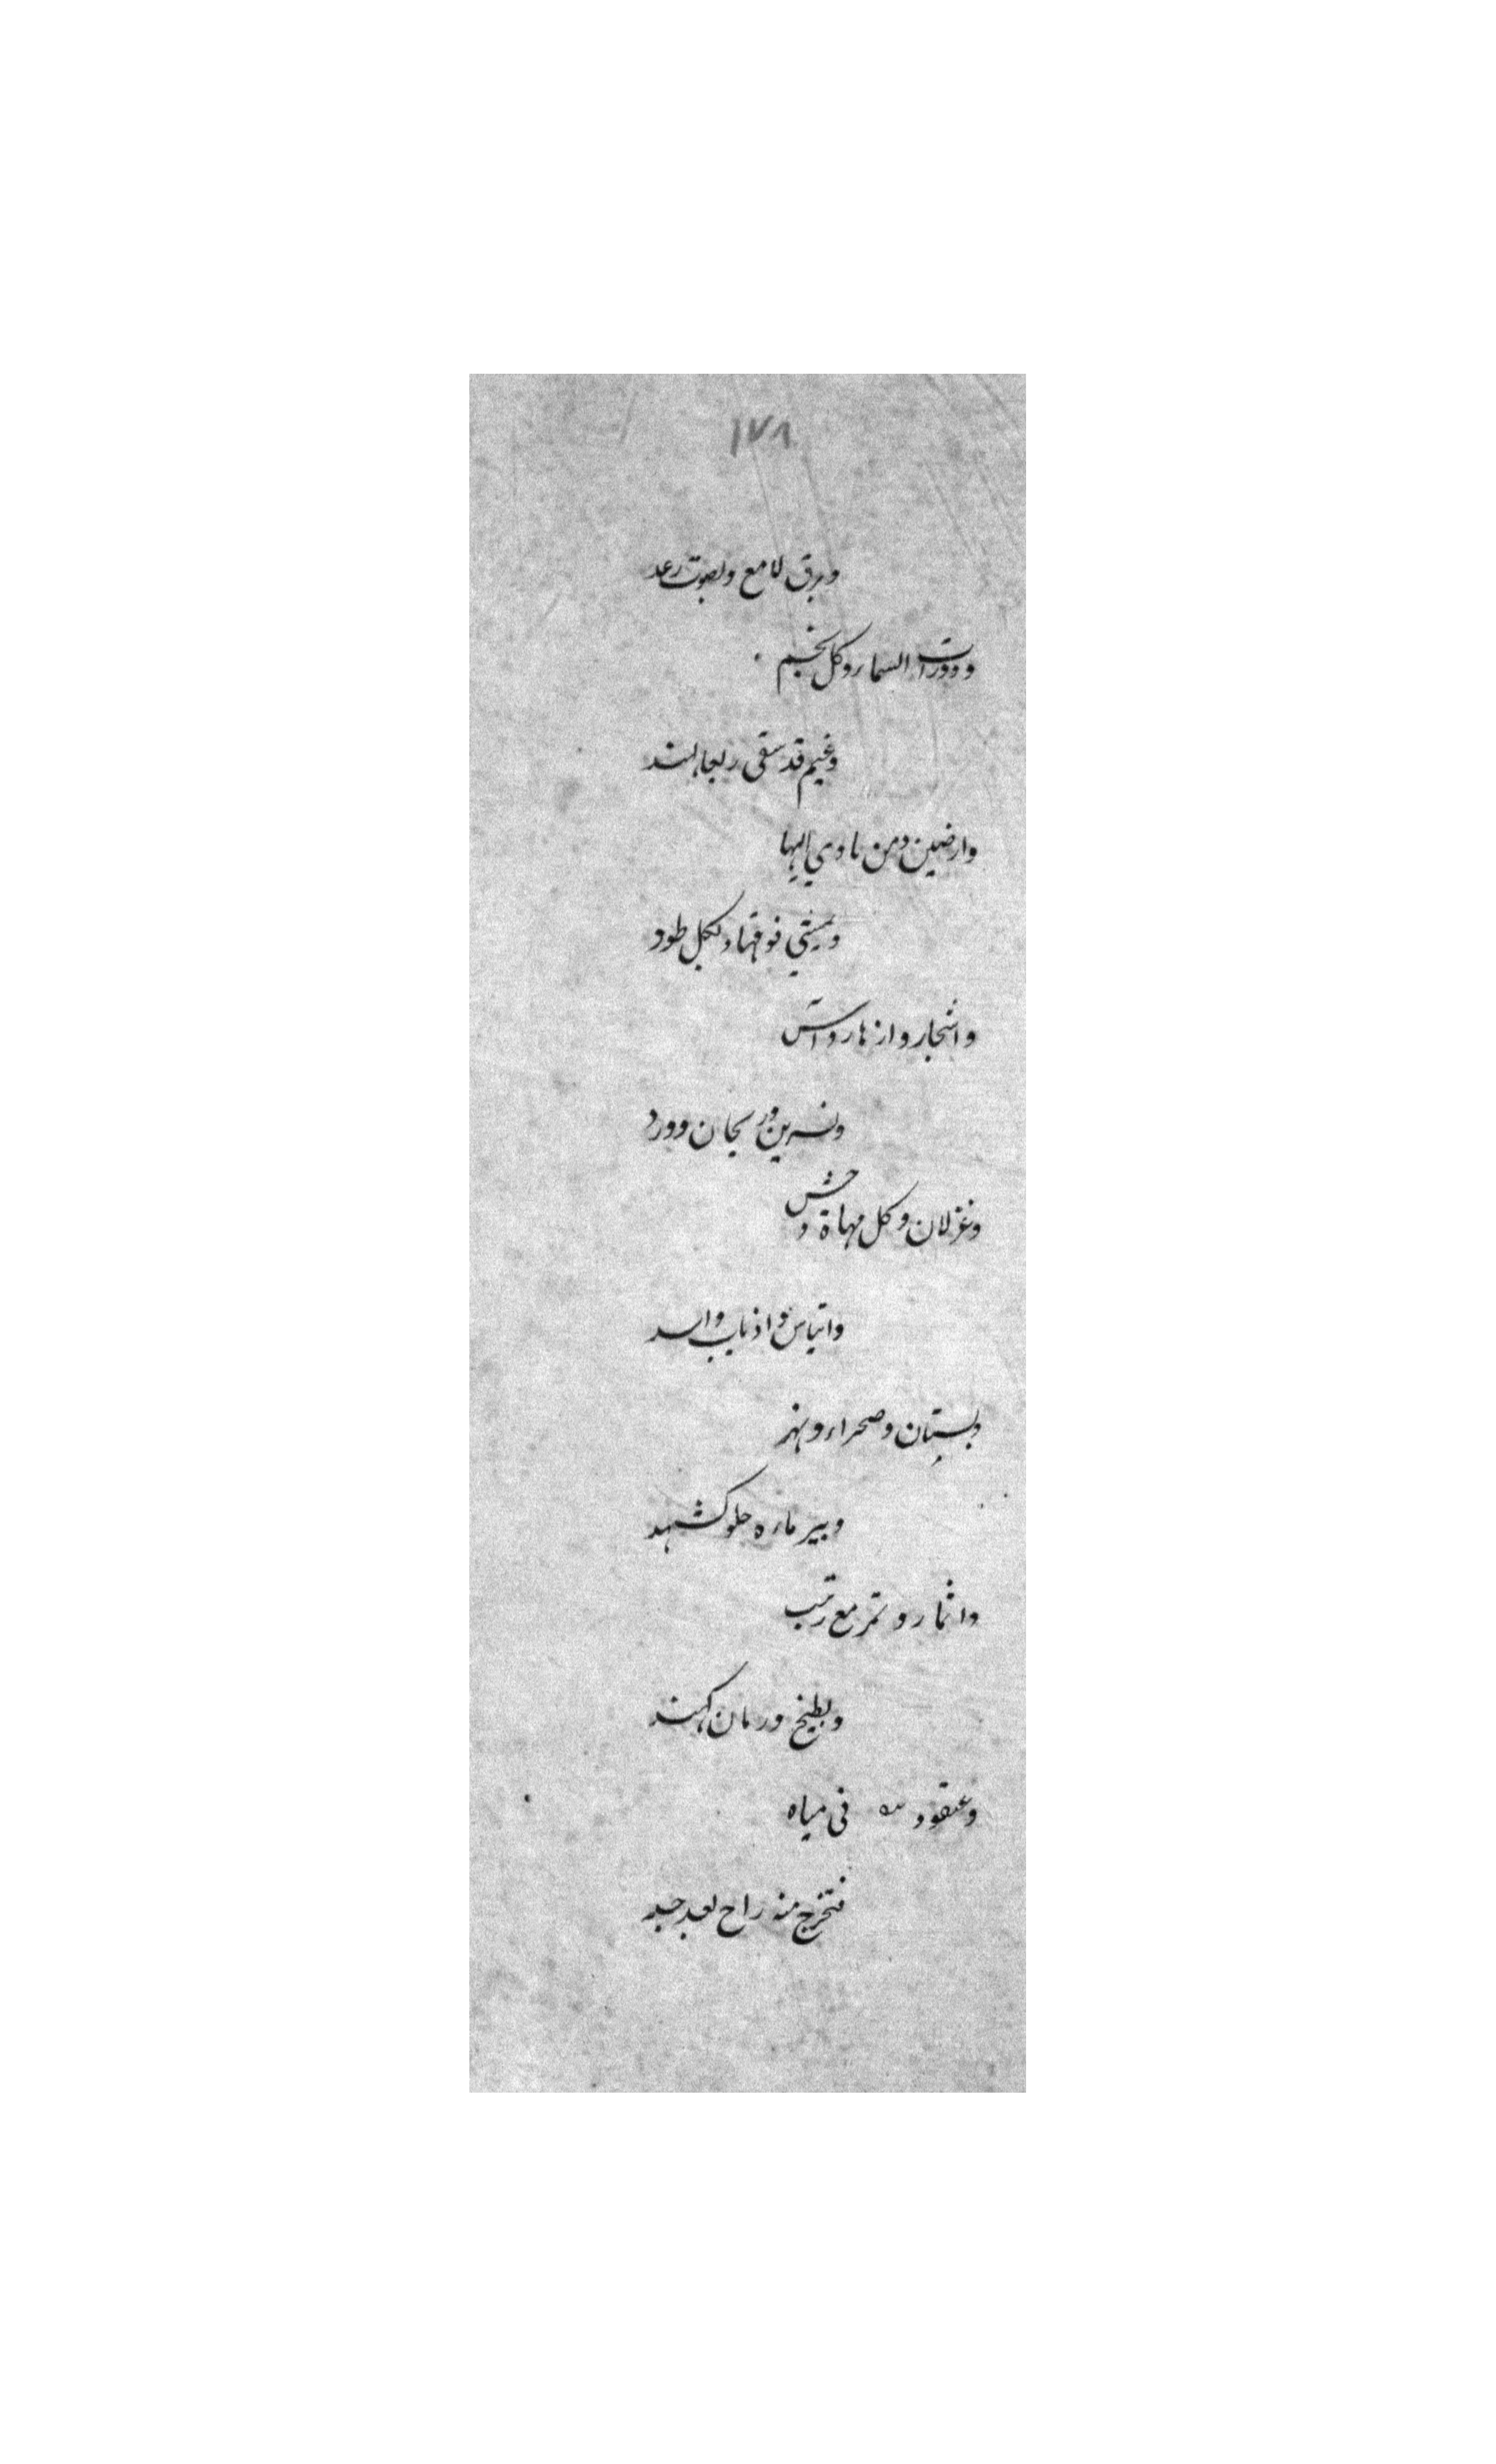 ١٧٨
وبرق لامع ولصوت رعد
ودورات السماء وكل نجم
وغيم قد سقى ربعا لهند
وارضين ومن ياوي اليها
ويمشي فوقها ولكل طود
واشجار وازهار وآس
ونسرين وريحان وورد
وغزلان وكل مهاة وحش
واتياس واذياب واسد
وبستان وصحراء ونهر
وبير ماءه حلو كشهد
واثمار وتمر مع
وبطيخ ورمان كهند
وعنقود في مياه
فتخرج منه راح بعد